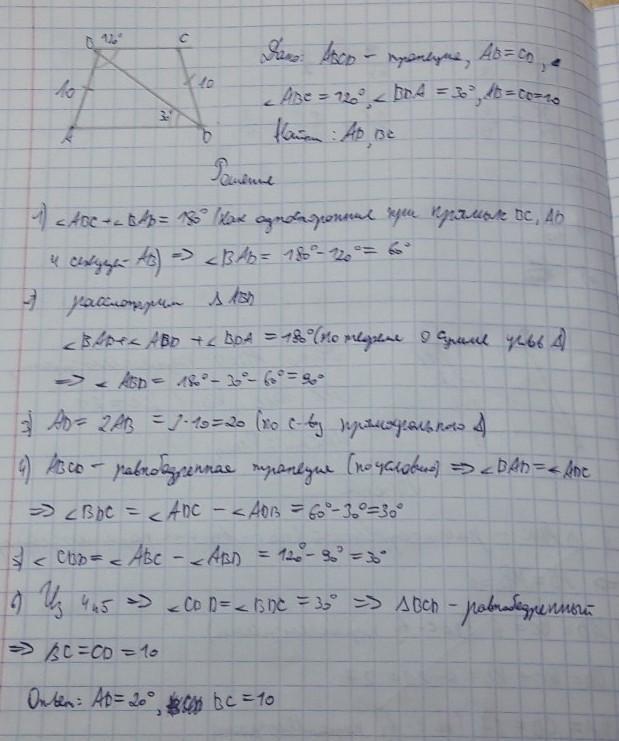 B 120° C
10 10
30°
A D
Дано: ABCD - трапеция, AB=CD,
∠ABC = 120°, ∠BDA = 30°, AB=CD=10
Найти: AD, BC
Решение
1) ∠ABC+∠BAD= 180° (как односторонние при прямых BC, AD
и секущей AB) => ∠BAD= 180°-120°= 60°
2) рассмотрим Δ ABD
∠BAD+∠ABD +∠BDA =180° (по теореме о сумме углов Δ)
=> ∠ABD= 180°-30°-60°=90°
3) AD= 2AB = 2·10=20 (по с-ву прямоугольного Δ)
4) ABCD - равнобедренная трапеция (по условию) => ∠BAD=∠ADC
=> ∠BDC = ∠ADC - ∠ADB = 60°-30°=30°
5) ∠CBD=∠ABC - ∠ABD = 120°-90°=30°
6) Из 4 и 5 => ∠CDD=∠BDC = 30° => ΔBCD - равнобедренный
=> BC=CD=10
Ответ: AD=20°, BC=10